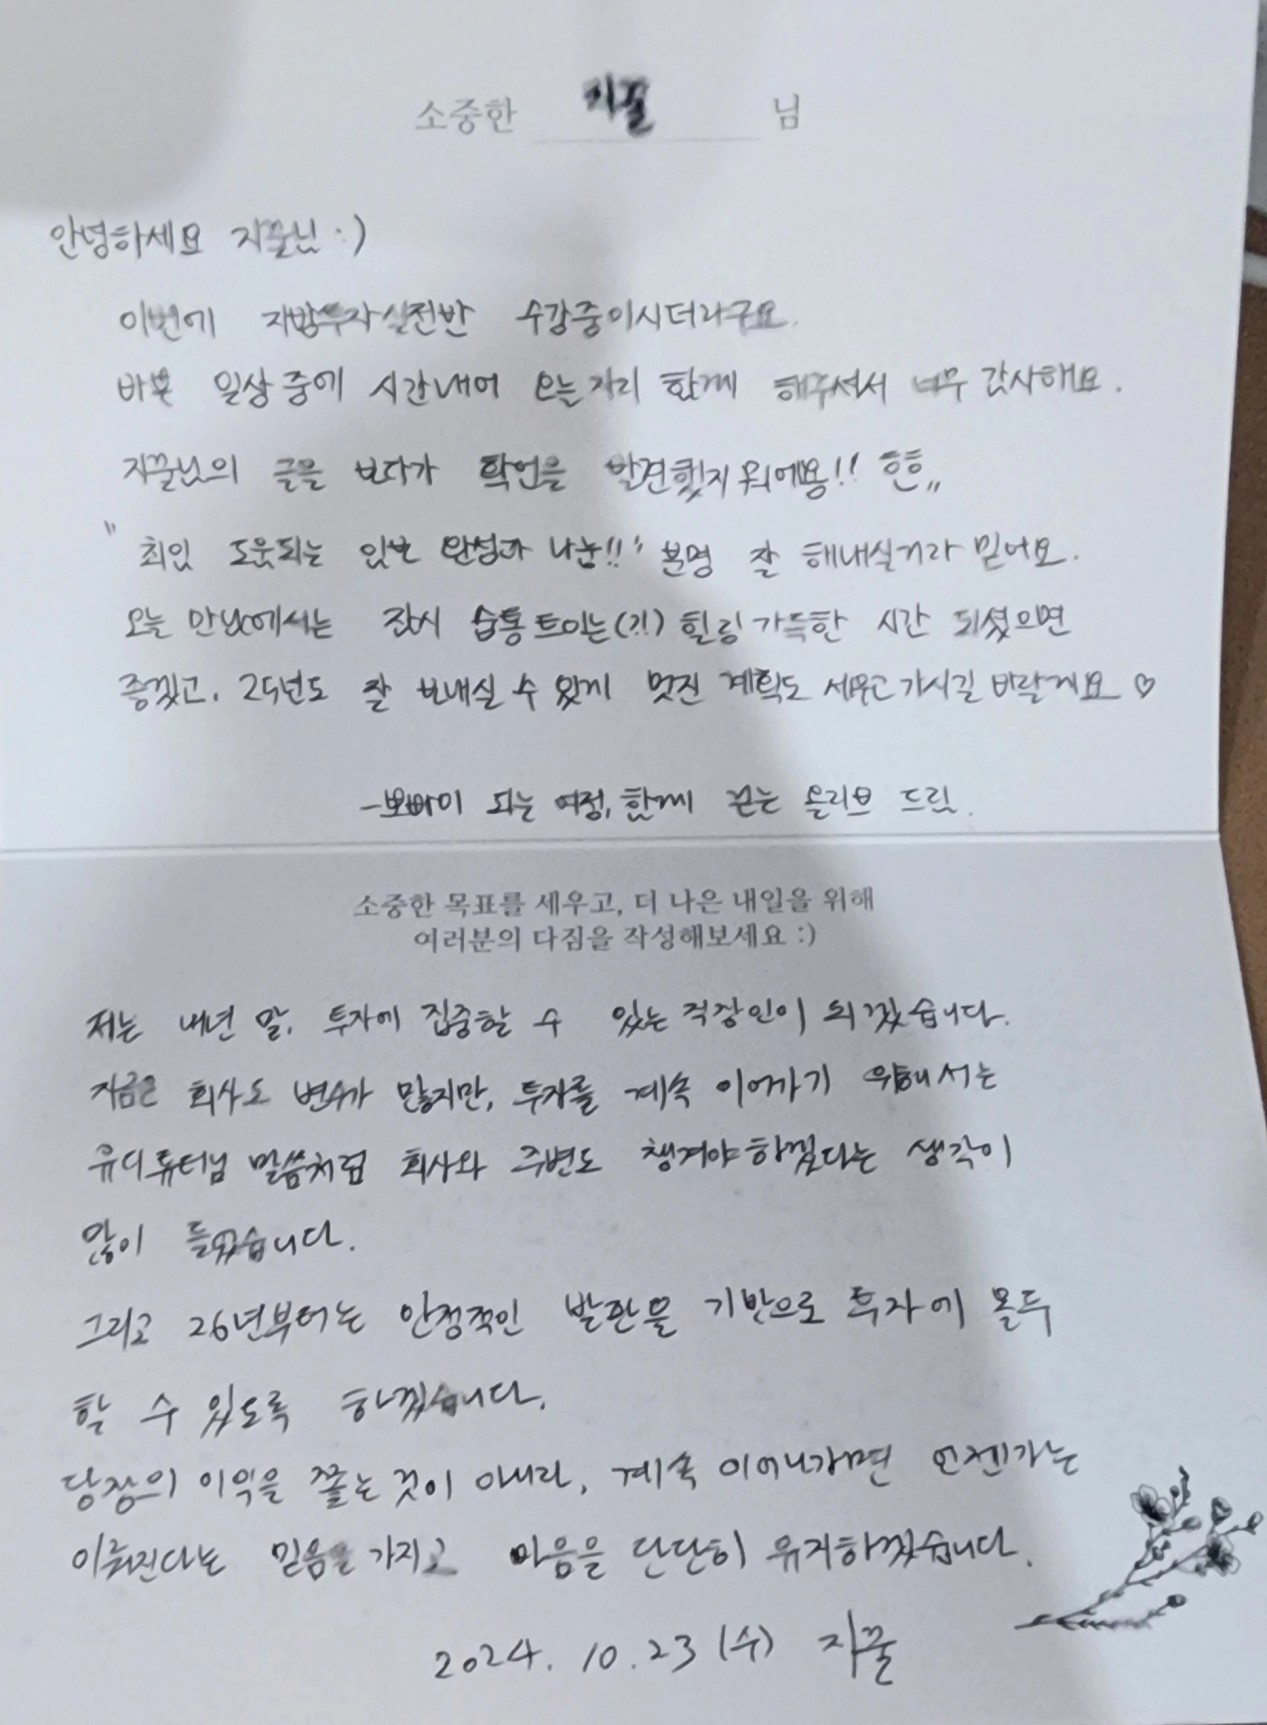 소중한 지꿀 님
안녕하세요 지꿀님 :)
이번에 지방투자실전반 수강중이시더라구요.
바쁜 일상 중에 시간내어 오늘 자리 함께 해주셔서 너무 감사해요.
지꿀님의 글을 보다가 확언을 발견했지 뭐에용!! ㅎㅎ,,
"최임 도움되는 임보 완성과 나눔!!" 분명 잘 해내실거라 믿어요.
오늘 만남에서는 잠시 숨통 트이는(?!) 힐링 가득한 시간 되셨으면
좋겠고, 25년도 잘 보내실 수 있게 멋진 계획도 세우고 가시길 바랄게요 ♡
- 뽀빠이 되는 여정, 함께 걷는 올리브 드림.
소중한 목표를 세우고, 더 나은 내일을 위해
여러분의 다짐을 작성해보세요 :)
저는 내년 말, 투자에 집중할 수 있는 직장인이 되겠습니다.
지금은 회사도 변수가 많지만, 투자를 계속 이어가기 위해서는
유디튜터님 말씀처럼 회사와 주변도 챙겨야하겠다는 생각이
많이 들었습니다.
그리고 26년부터는 안정적인 발판을 기반으로 투자에 몰두
할 수 있도록 하겠습니다.
당장의 이익을 쫓는 것이 아니라, 계속 이어나가면 언젠가는
이뤄진다는 믿음을 가지고 마음을 단단히 유지하겠습니다.
2024. 10. 23 (수) 지꿀